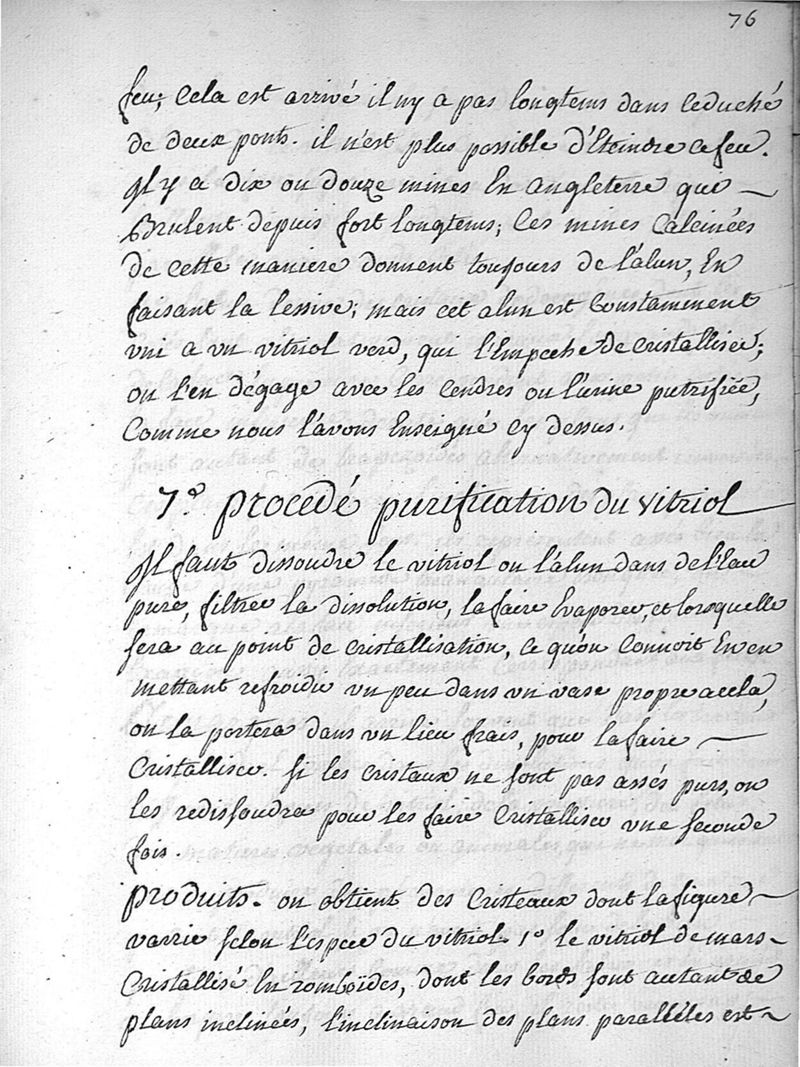 76
feu; Cela est arrivé il ny a pas longtems dans Ceduché
de deux ponts. il n'est plus possible d'Eteindre cefeu.
Il y a dix ou douze mines En angleterre qui —
Brulent depuis fort longtems; Ces mines Calcinées
de cette maniere donnent toujours de l'alun, En
faisant la lessive; mais cet alun est Constamment
vni a vn vitriol verd, qui l'Empeche de cristalliser;
on l'en dégage avec les Cendres ou l'urine putrifiée,
Comme nous l'avons Enseigné Cy dessus.
7.º procedé purification du vitriol
Il faut dissoudre le vitriol ou l'alun dans de l'Eau
pure, filtrer la dissolution, la faire Evaporer, et lorsquelle
sera au point de cristallisation, ce qu'on Connoit En en
mettant refroidir vn peu dans vn vase propre acela,
on la portera dans vn lieu frais, pour la faire —
Cristalliser. si les cristaux ne sont pas assés purs, on
les redissoudra pour les faire Cristalliser vne seconde
fois.
produits. on obtient des Cristeaux dont la figure —
varrie selon l'espece du vitriol. 1º le vitriol de mars —
Cristallisé En romboïdes, dont les bords sont autant de
plans inclinées, l'inclinaison des plans paralléles est —